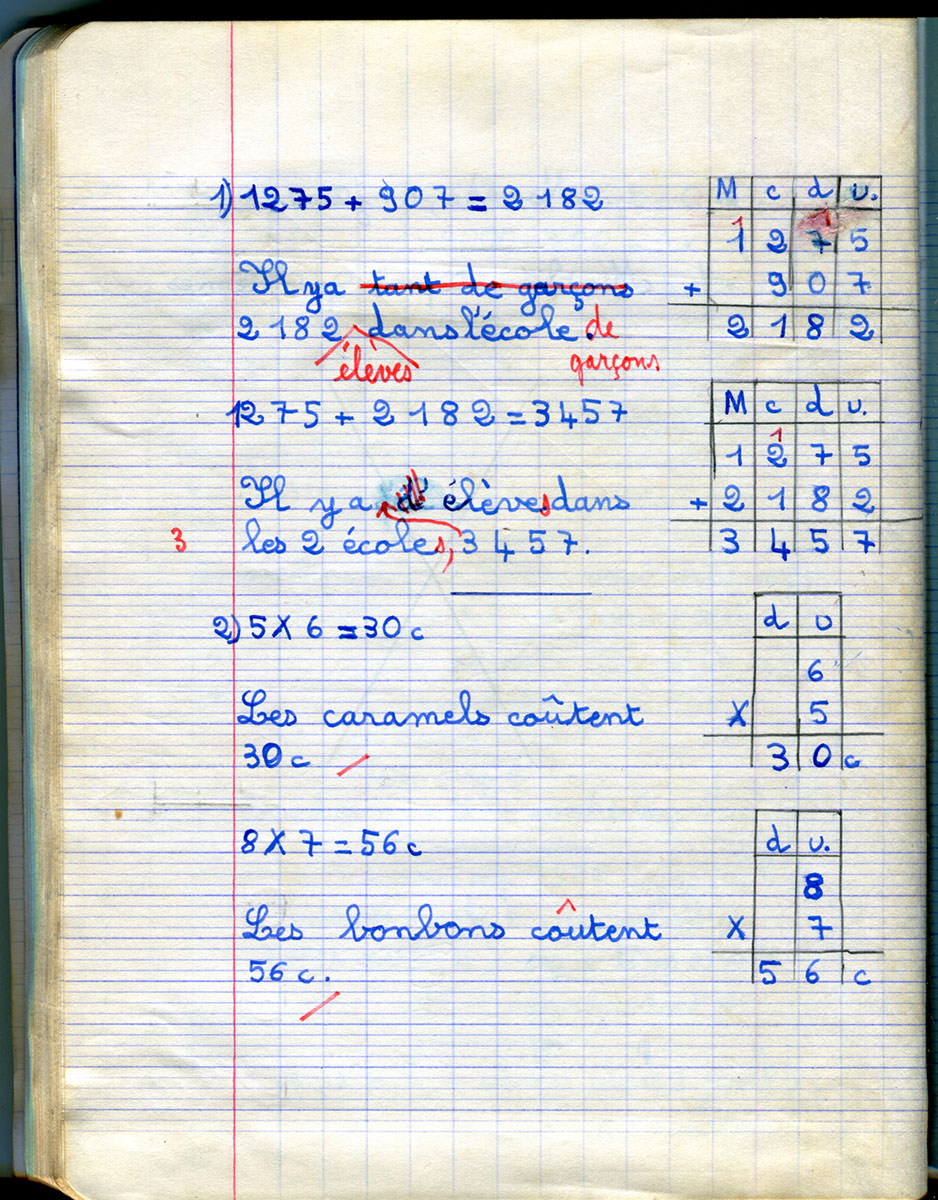 1) 1275 + 907 = 2182
Il y a tant de garçons
2182 dans l'école. de
élèves garçons
M c d u.
1 1
1 2 7 5
+ 9 0 7
2 1 8 2
1275 + 2182 = 3457
Il y a d' élèves dans
3 les 2 écoles, 3457.
M c d u.
1
1 2 7 5
+ 2 1 8 2
3 4 5 7
2) 5 X 6 = 30 c
Les caramels coûtent
30 c
d u
6
X 5
3 0 c
8 X 7 = 56 c
Les bonbons coûtent
56 c.
d u.
8
X 7
5 6 c